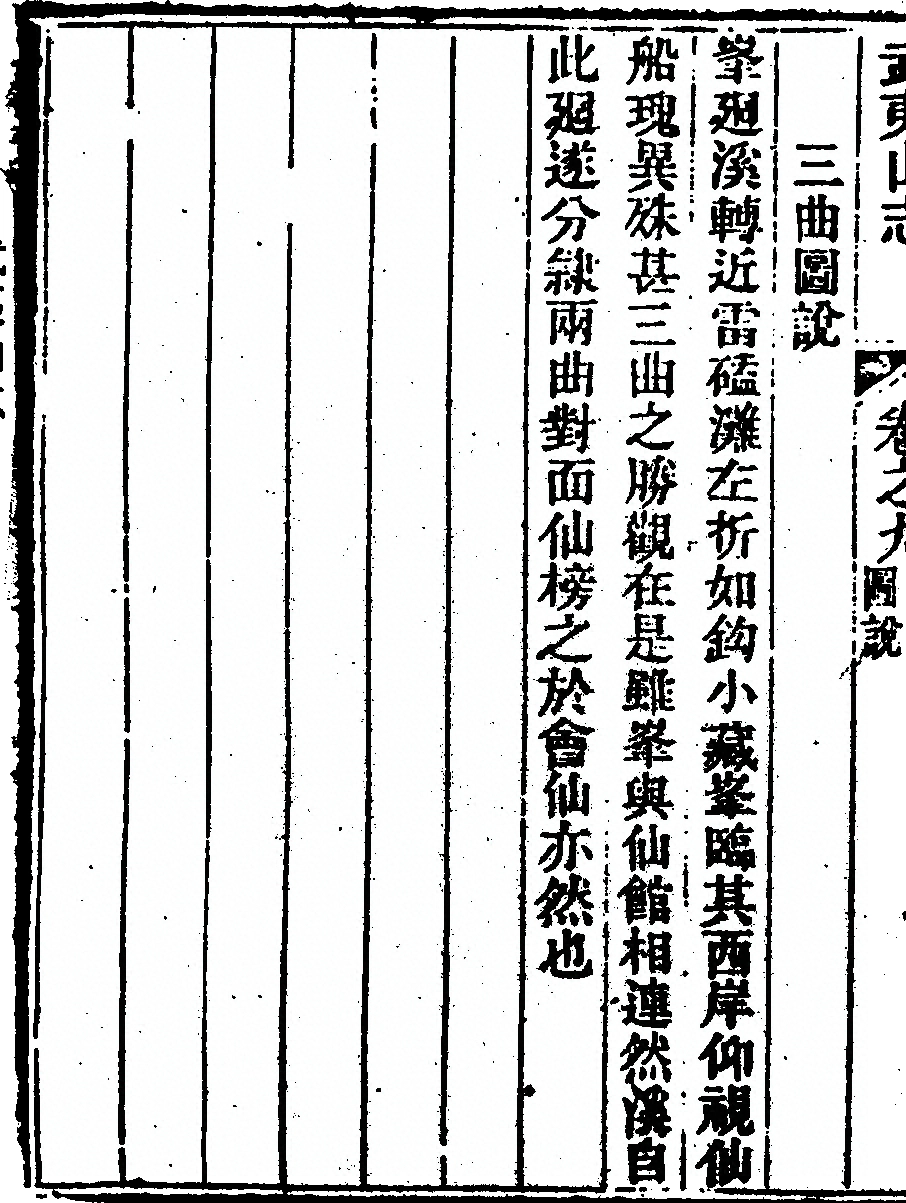 武夷山志 卷之九 圖說
三曲圖說
峯廻溪轉近雷磕灘左折如鈎小藏峯臨其西岸仰視仙
船瑰異殊甚三曲之勝觀在是雖峯與仙館相連然溪自
此廻遂分隸兩曲對面仙榜之於會仙亦然也